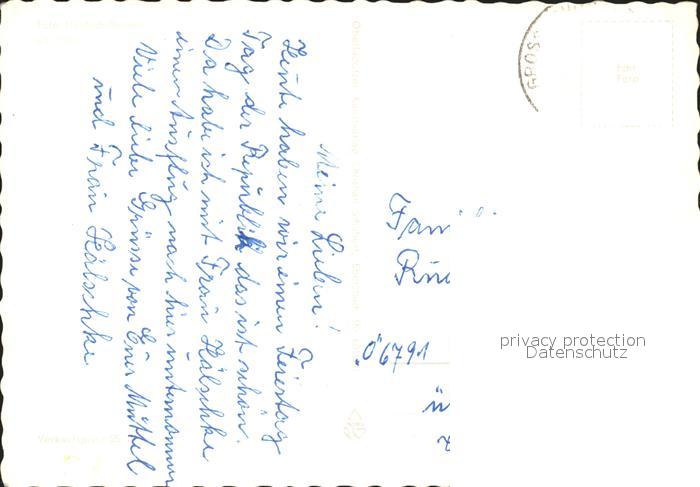 Meine Lieben!
Heute haben wir einen Feiertag
Tag der Republik das ist schön.
Da habe ich mit Frau Hälschke
einen Ausflug nach hier unternommen
Viele liebe Grüsse von Eurer Muttel
und Frau Hälschke
Fam
"Ö"6791
privacy protection
Datenschutz
Verkaufspreis 25